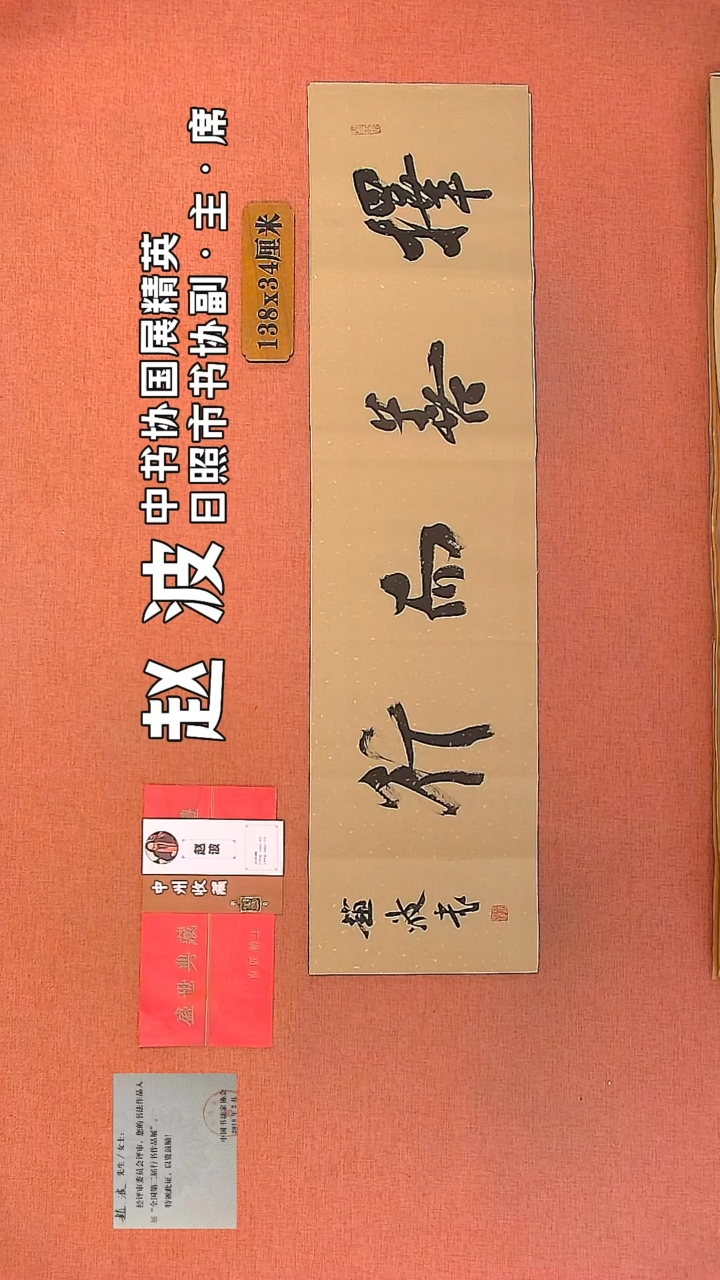 赵 波
中书协国展精英
日照市书协副·主·席
138x34厘米
擇善而行
趙波书
赵波
中州收藏
盛世典藏
趙波 先生／女士：
经评审委员会评审，您的书法作品入
展“全国第二届行书作品展”。
特颁此证，以资鼓励！
中国书法家协会